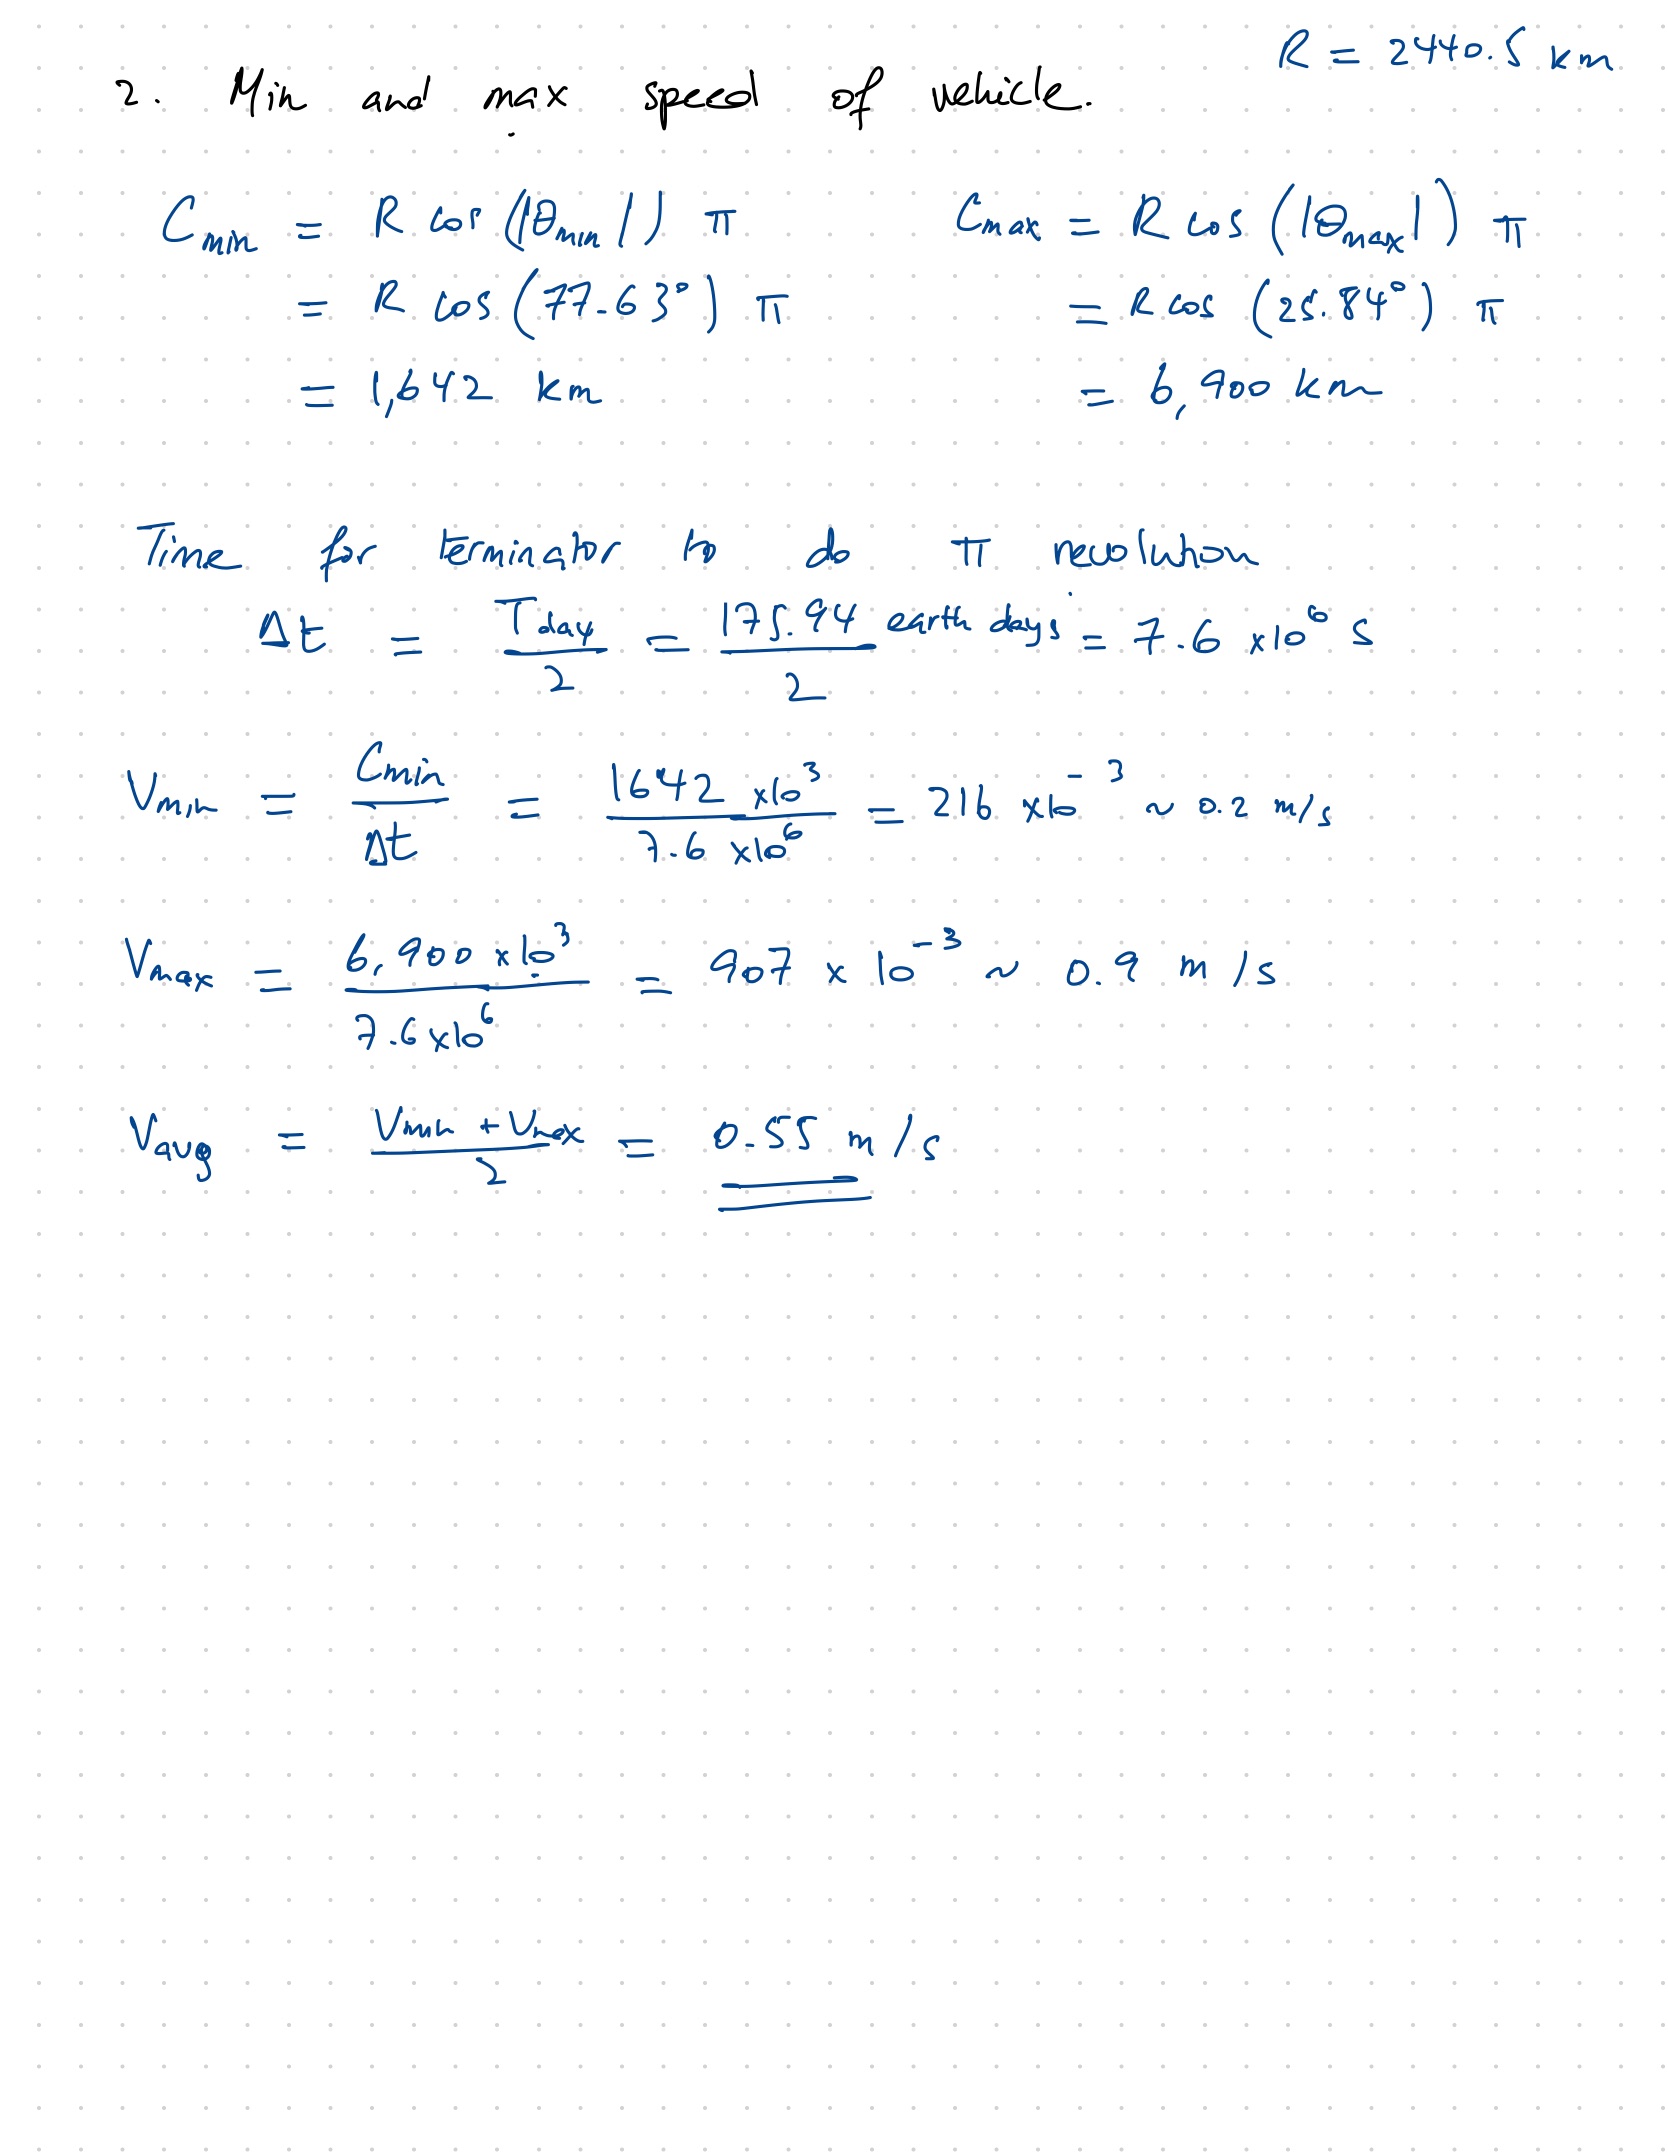 R = 2440.5 km
2. Min and max speed of vehicle.
C_min = R cos(|θ_min|) π
= R cos(77.63°) π
= 1,642 km
C_max = R cos(|θ_max|) π
= R cos(25.84°) π
= 6,900 km
Time for terminator to do π revolution
Δt = T_day / 2 = 175.94 / 2 earth days = 7.6 x10⁶ s
V_min = C_min / Δt = 1642 x10³ / 7.6 x10⁶ = 216 x10⁻³ ~ 0.2 m/s
V_max = 6,900 x10³ / 7.6 x10⁶ = 907 x 10⁻³ ~ 0.9 m/s
V_avg = V_min + V_max / 2 = 0.55 m/s